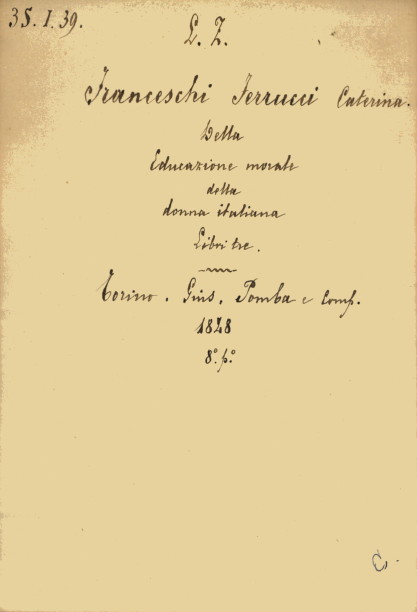 35.I.39.
L. Z.
Franceschi Ferrucci Caterina.
Della
Educazione morale
della
donna italiana
Libri tre.
Torino. Gius. Pomba e Comp.
1848
8.° p.°
C.